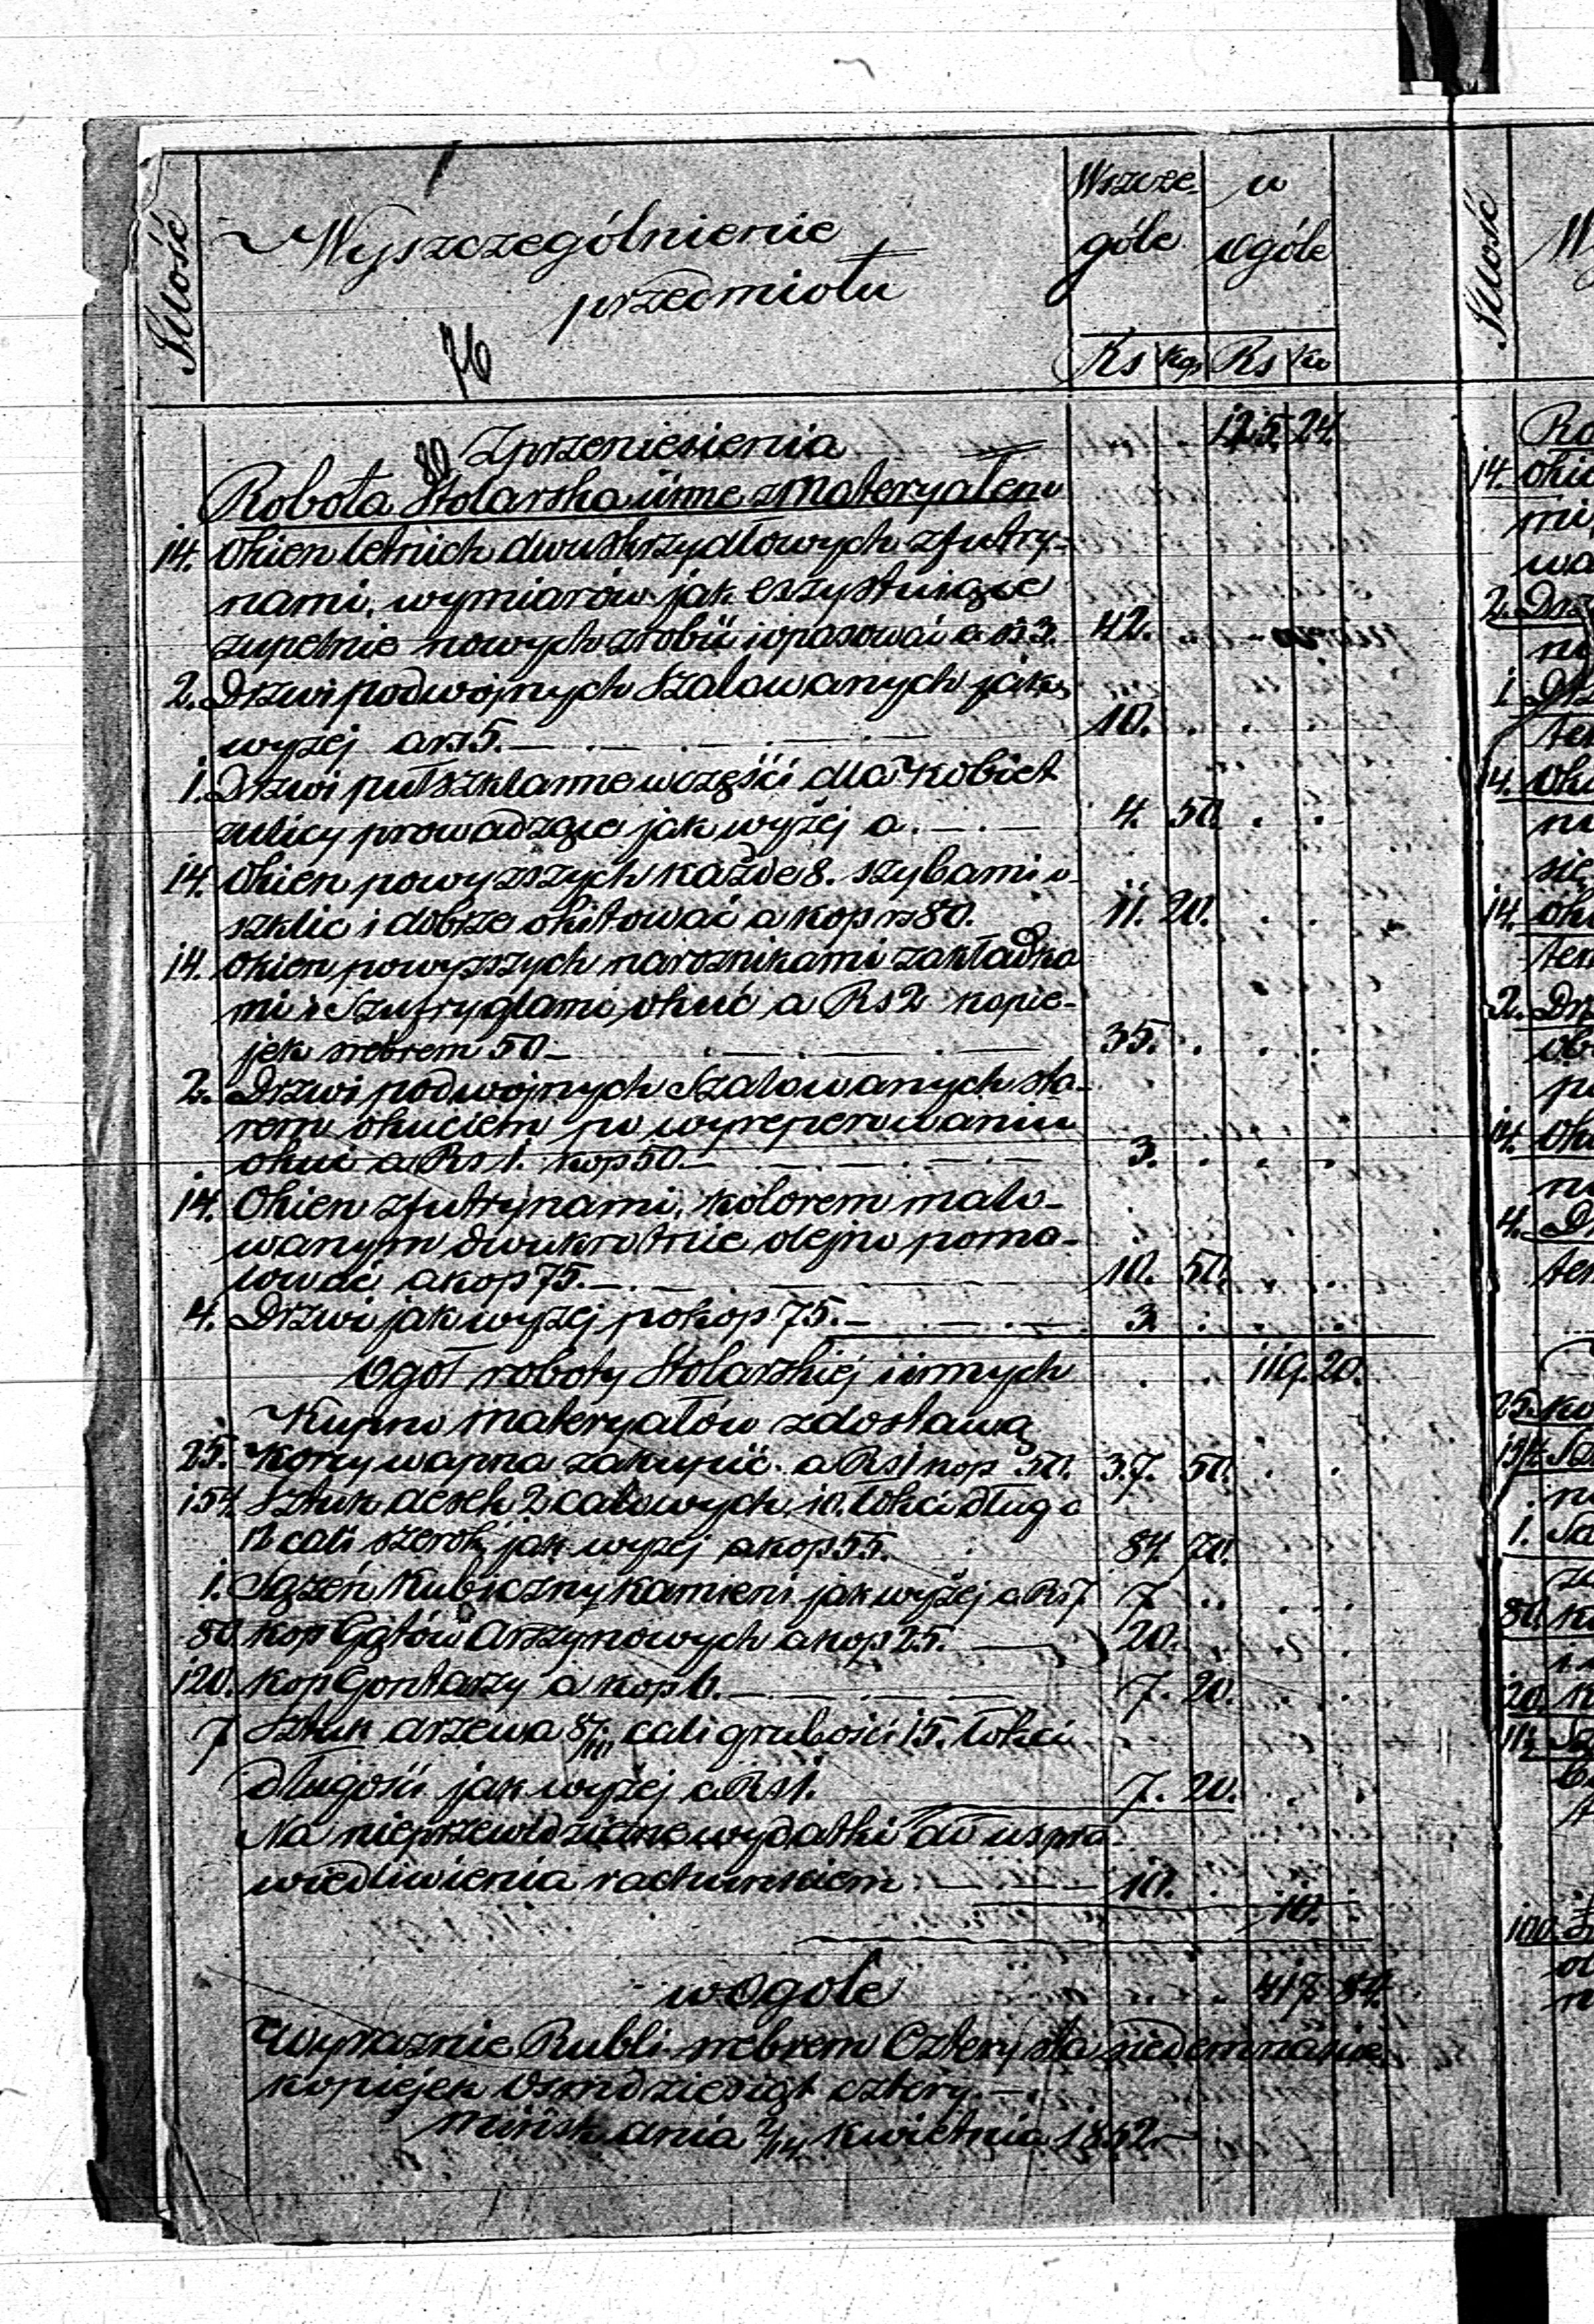 Ilość
Wyszczególnienie
przedmiotu
76
Wszcze-
góle
w
ogóle
Rs kop Rs ko
Z przeniesienia 125. 24.
80
Robota Stolarska i inne z Materyałem
14. Okien letnich dwuskrzydłowych z futry-
nami, wymiarów jak exzystuiące
zupełnie nowych zrobić i opasować a rs 3. 42.
2. Drzwi podwójnych szalowanych jak
wyzej a rs 5. 10.
1. Drzwi pułszklanne w części dla Kobiet
z ulicy prowadzące jak wyżej a 4. 50.
14. Okien powyzszych każde 8. szybami o-
szklic i dobrze okitować a kop rs 80. 11. 20.
14. Okien powyzszych naroznikami zakładka
mi i Szufryglami okuć a Rs 2 kopie-
jek srebrem 50 35.
2. Drzwi podwójnych Szalowanych sta-
rem okuciem po wyreperowaniu
okuć a Rs 1. kop 50. 3.
14. Okien z futrynami, kolorem malo-
wanym dwukrotnie olejno poma-
lować a kop 75. 10. 50.
4. Drzwi jak wyzej po kop 75. 3.
Ogół roboty Stolarskiej i innych 119. 20.
Kupno Materyałów z dostawą
25. Korcy wapna zakupić a Rs 1 kop 50. 37. 50.
154. Sztuk desek 2 calowych, 10. łokci dług
12 cali szerok, jak wyzej a kop 55. 84. 70.
1. Sążeń Kubiczny kamieni jak wyżej a Rs 7 7
80 kop Gątów Arszynowych a kop 25. 20.
120. kop Gontarzy a kop 6. 7. 20.
7 Sztuk drzewa 8/10 cali grubości 15. łokci
długości jak wyżej a Rs 1. 7. 20.
Na nieprzewidziane wydatki do uspra-
wiedliwienia rachunkiem 10.
10.
w Ogole 417. 84.
Wyraznie Rubli srebrem Cztery sta siedemnaście
kopiejek Osmdziesiąt cztery.
Mińsk dnia 2/14 Kwietnia 1862
Ilość
14.
2.
1.
14.
14.
2.
14.
4.
25.
154.
1.
80.
120.